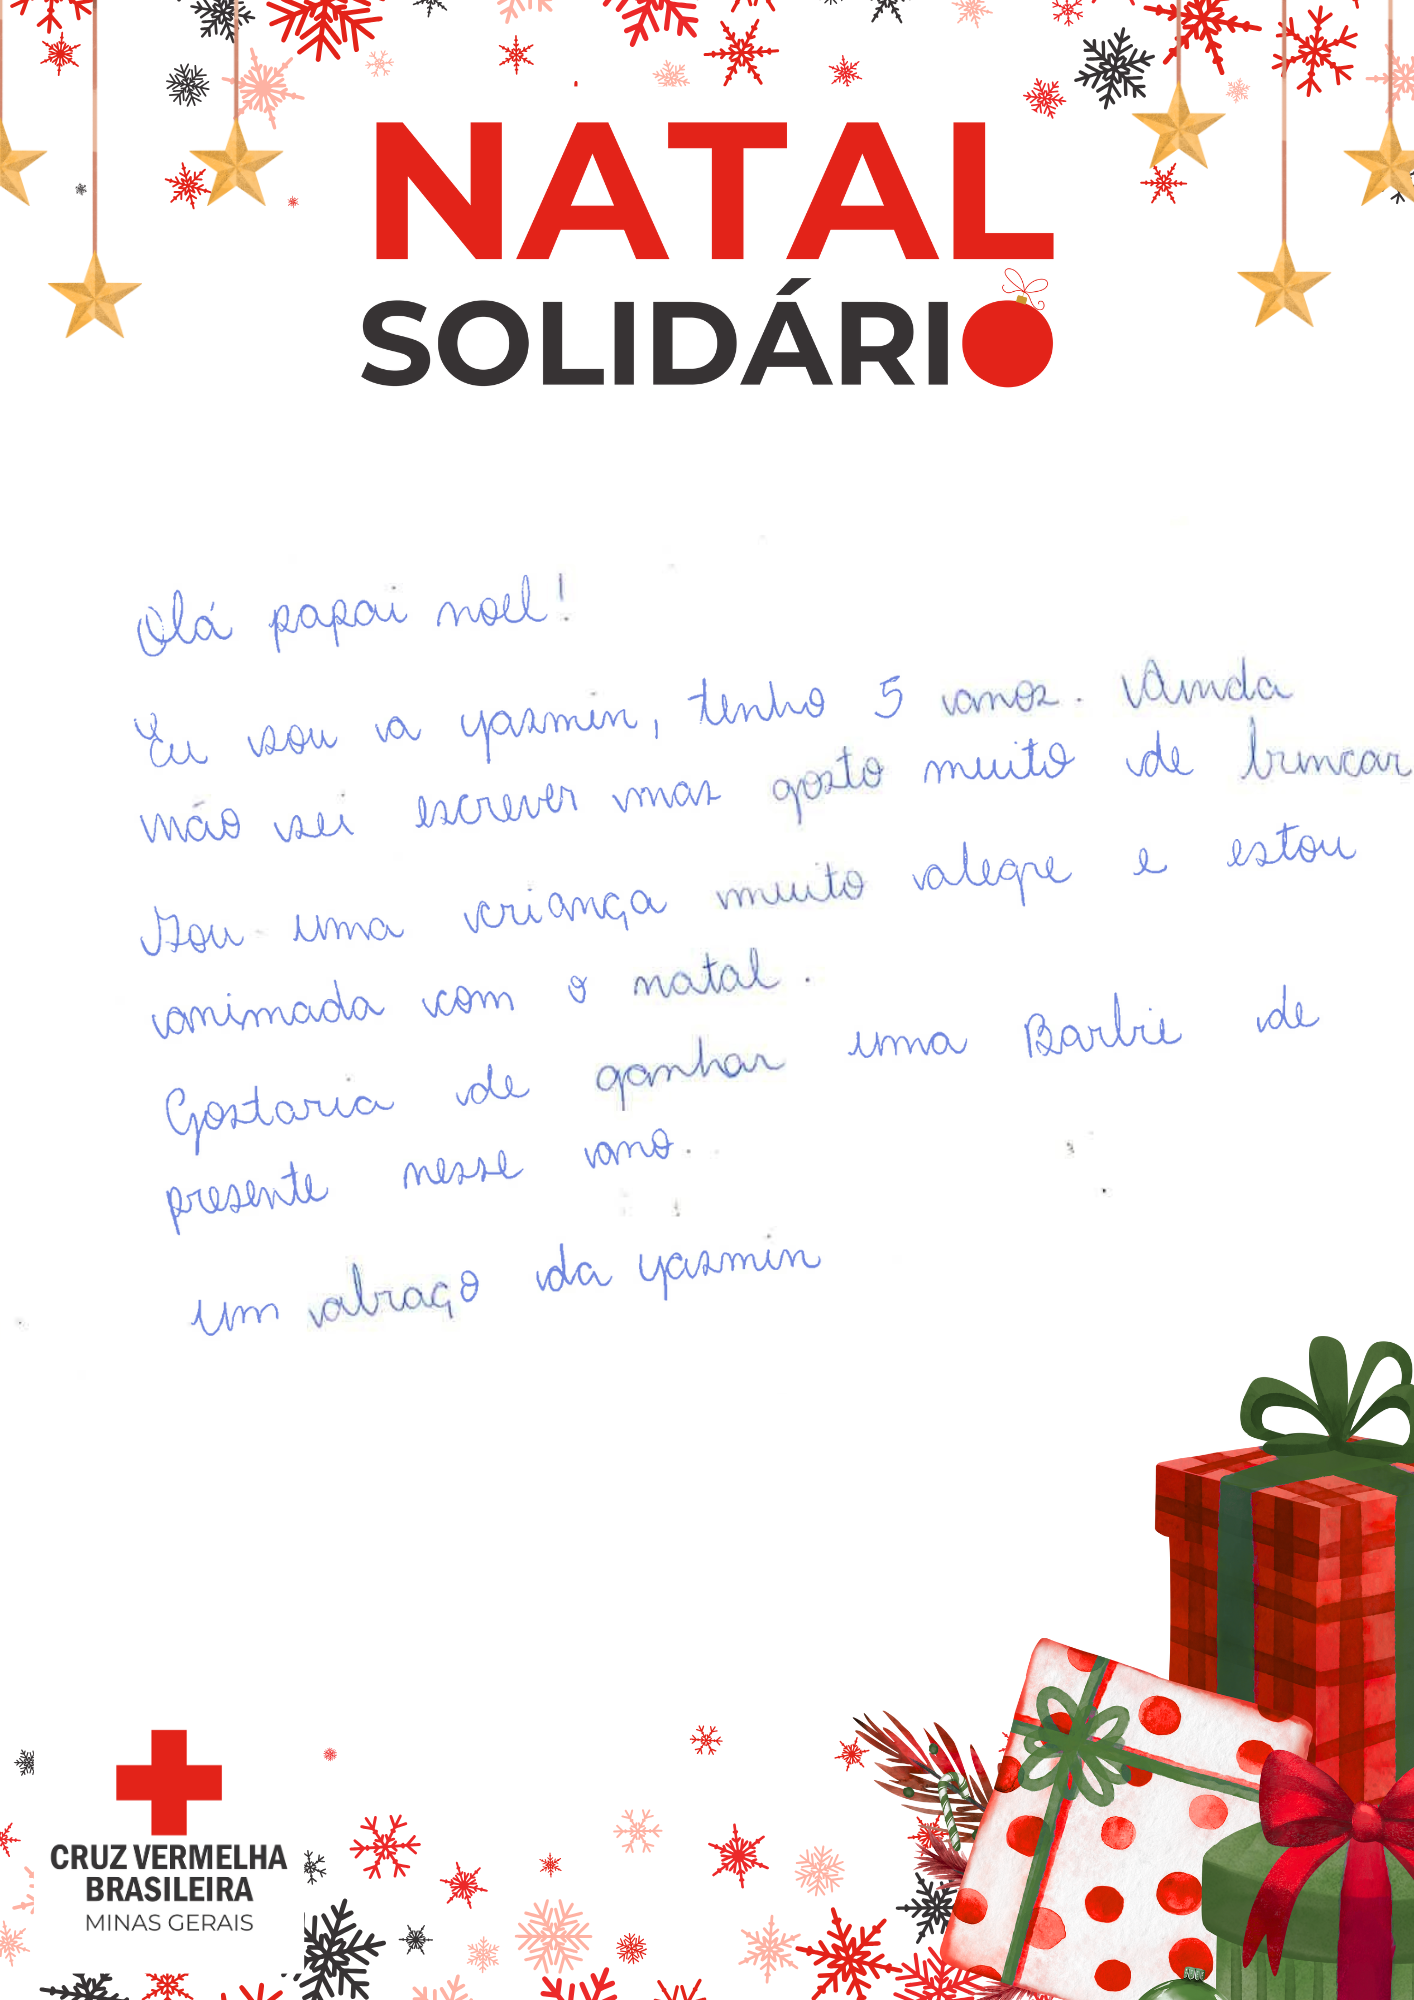 NATAL
SOLIDÁRIO
Olá papai noel!
Eu sou a yasmin, tenho 5 anos. Ainda
não sei escrever mas gosto muito de brincar
Sou uma criança muito alegre e estou
animada com o natal.
Gostaria de ganhar uma Barbie de
presente nesse ano.
um abraço da yasmin
CRUZ VERMELHA
BRASILEIRA
MINAS GERAIS